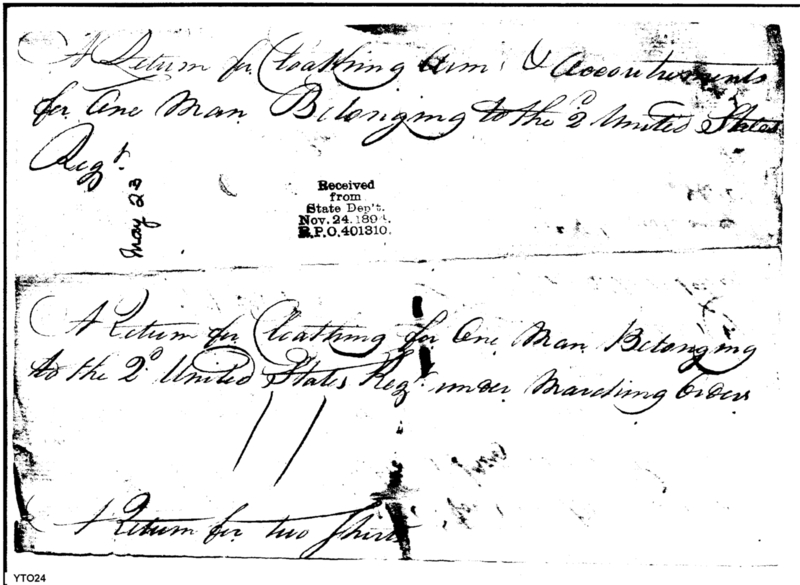 A Return for Cloathing Arms & Accoutrements
for One Man Belonging to the 2d United States
Regt.
May 23
Received
from
State Dep't.
Nov. 24. 189
R.P.O. 401310.
A Return for Cloathing for One Man Belonging
to the 2d United States Regt. under Marching Orders
A Return for two Shirts
YTO24